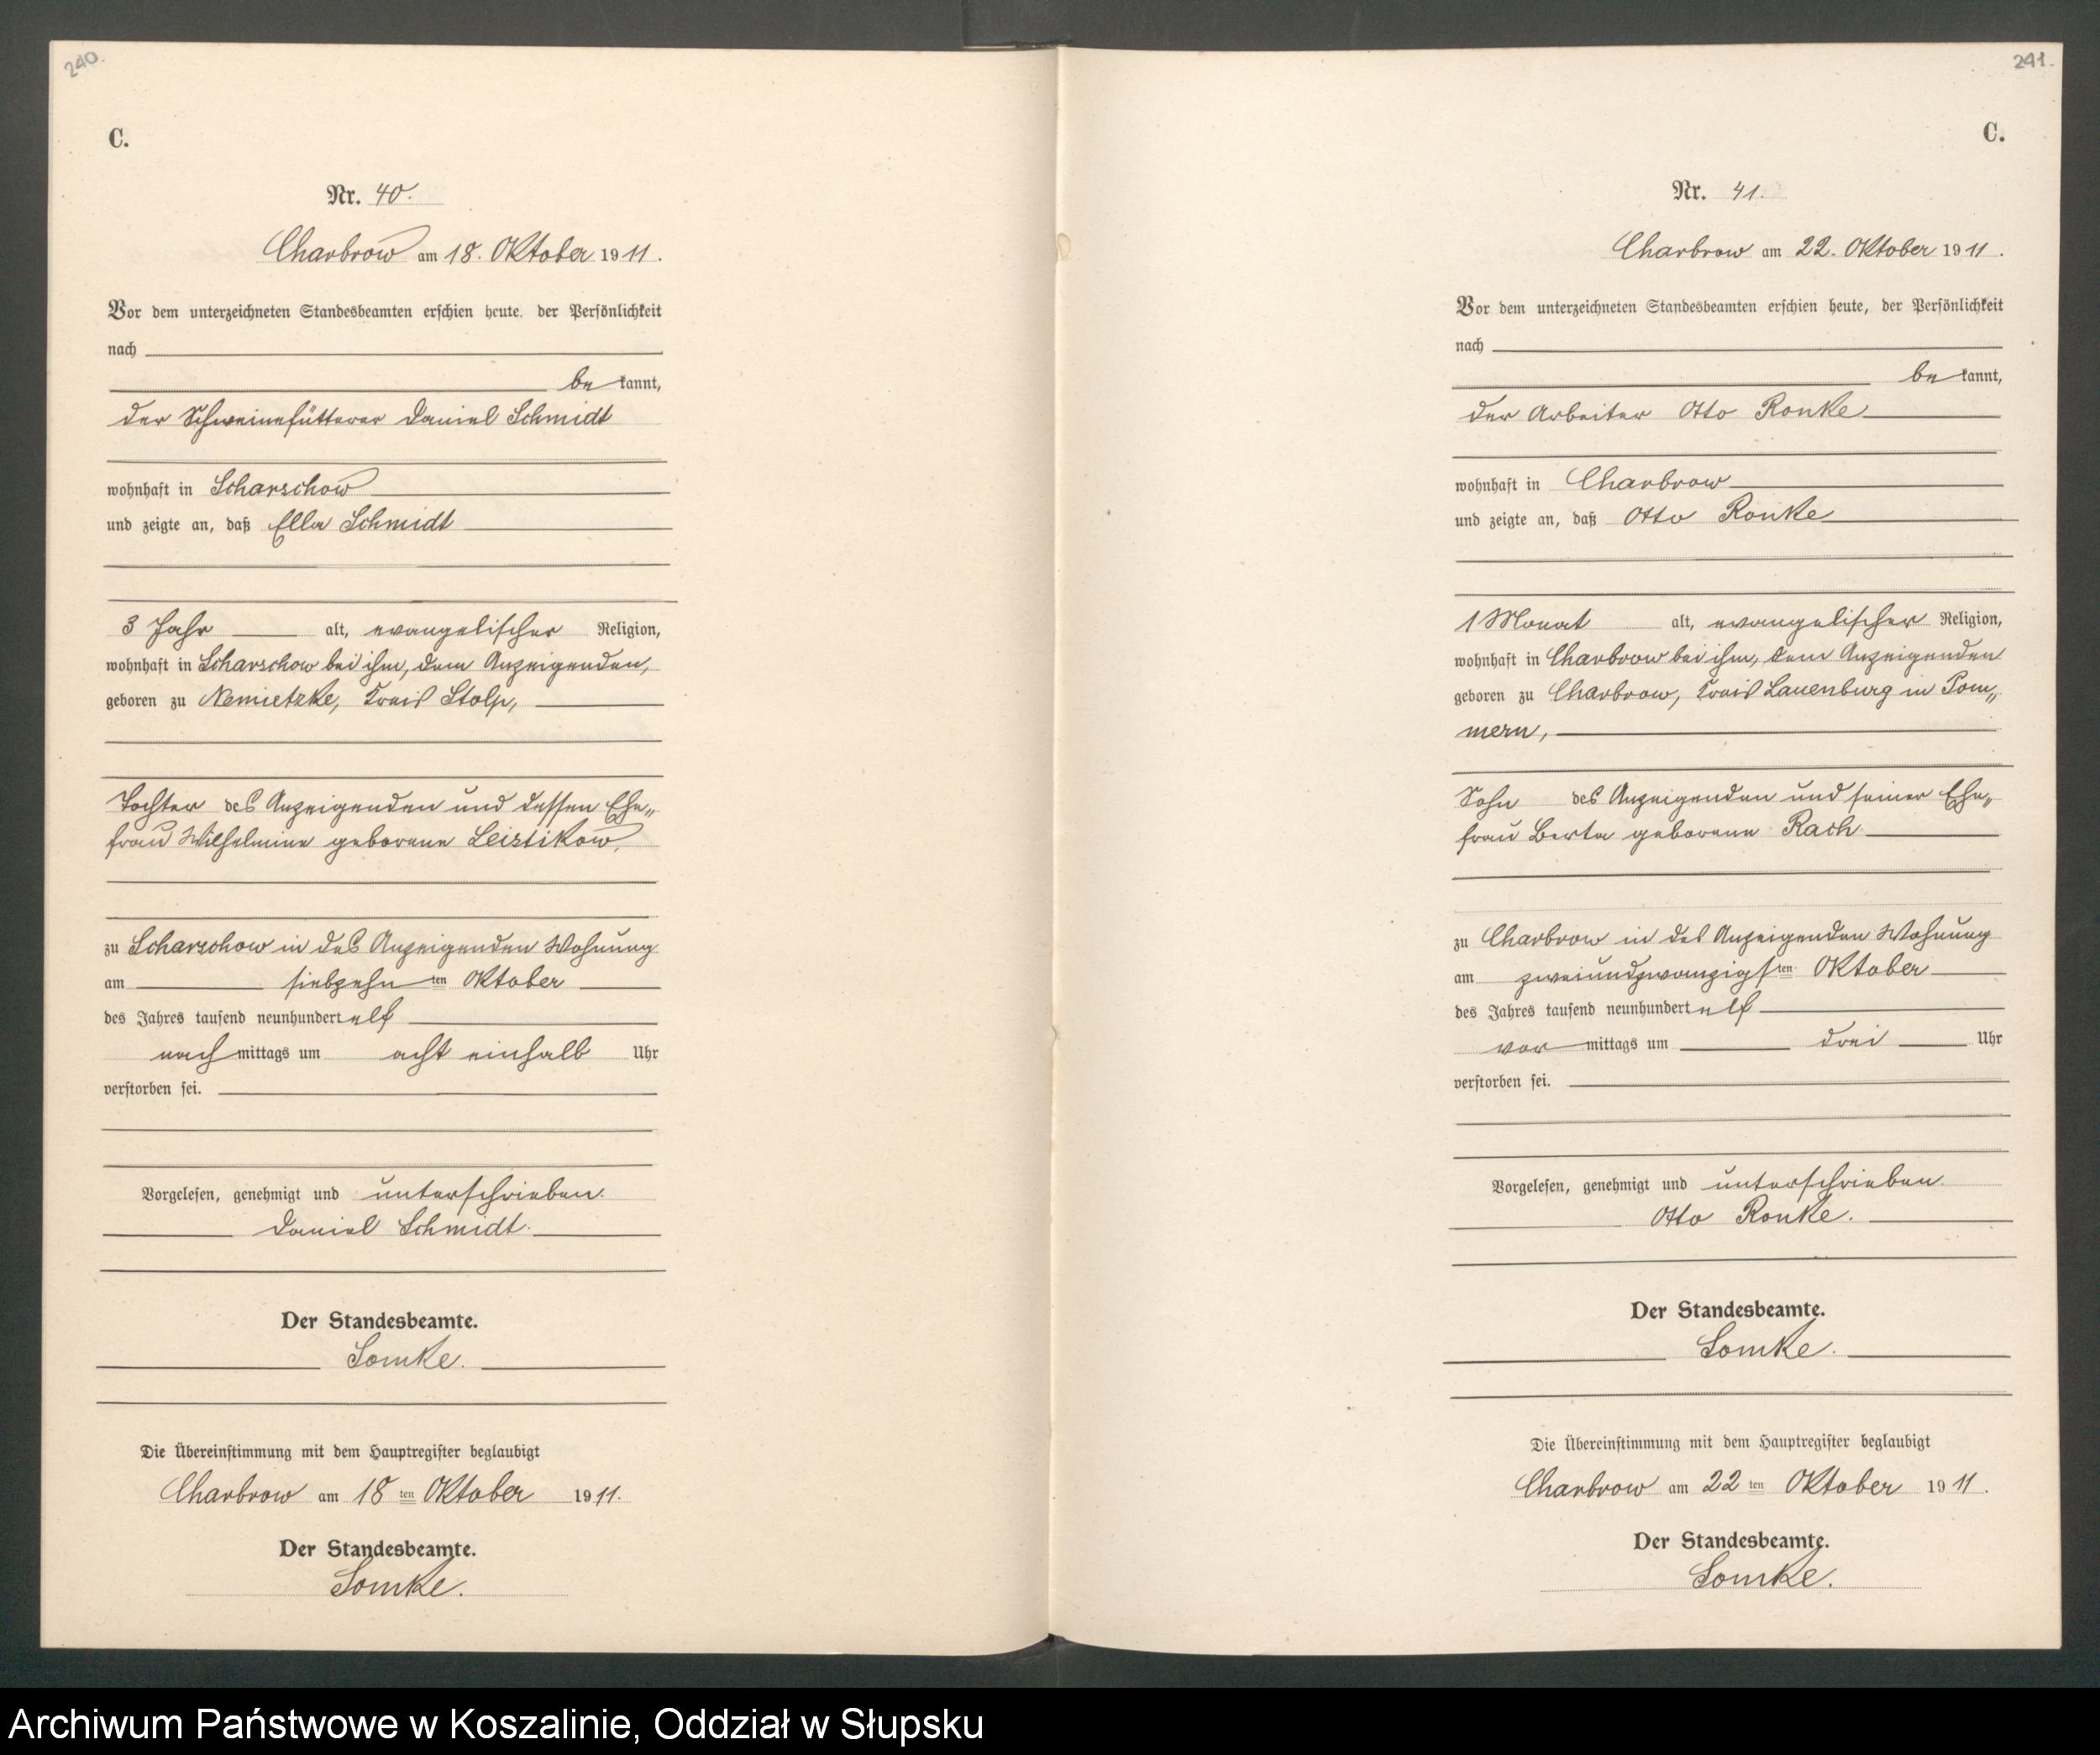 240.
C.
Nr. 40.
Charbrow am 18. Oktober 1911.
Vor dem unterzeichneten Standesbeamten erschien heute, der Persönlichkeit
nach
be kannt,
der Schweinefütterer Daniel Schmidt
wohnhaft in Scharschow
und zeigte an, daß Ella Schmidt
3 Jahr alt, evangelischer Religion,
wohnhaft in Scharschow bei ihm, dem Anzeigenden,
geboren zu Nemietzke, Kreis Stolp,
Tochter des Anzeigenden und dessen Ehe„
frau Wilhelmine geborene Leistikow,
zu Scharschow in des Anzeigenden Wohnung
am siebzehn ten Oktober
des Jahres tausend neunhundert elf
nach mittags um acht einhalb Uhr
verstorben sei.
Vorgelesen, genehmigt und unterschrieben.
Daniel Schmidt.
Der Standesbeamte.
Lomke.
Die Übereinstimmung mit dem Hauptregister beglaubigt
Charbrow am 18 ten Oktober 1911.
Der Standesbeamte.
Lomke.
241.
C.
Nr. 41.
Charbrow am 22. Oktober 1911.
Vor dem unterzeichneten Standesbeamten erschien heute, der Persönlichkeit
nach
be kannt,
der Arbeiter Otto Ronke
wohnhaft in Charbrow
und zeigte an, daß Otto Ronke
1 Monat alt, evangelischer Religion,
wohnhaft in Charbrow bei ihm, dem Anzeigenden
geboren zu Charbrow, Kreis Lauenburg in Pom„
mern,
Sohn des Anzeigenden und seiner Ehe„
frau Berta geborene Rach
zu Charbrow in des Anzeigenden Wohnung
am zweiundzwanzigs ten Oktober
des Jahres tausend neunhundert elf
vor mittags um drei Uhr
verstorben sei.
Vorgelesen, genehmigt und unterschrieben.
Otto Ronke.
Der Standesbeamte.
Lomke.
Die Übereinstimmung mit dem Hauptregister beglaubigt
Charbrow am 22 ten Oktober 1911.
Der Standesbeamte.
Lomke.
Archiwum Państwowe w Koszalinie, Oddział w Słupsku